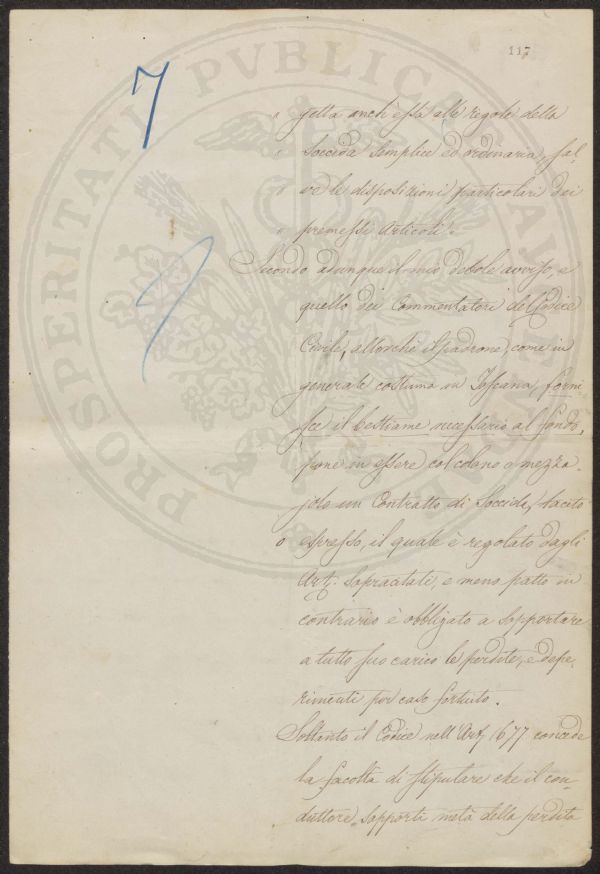 117
7
" getta anch'essa alle regole della
" Soccida Semplice ed ordinaria, sal
" ve le disposizioni particolari dei
" premessi Articoli".
Secondo adunque il mio debole avviso, e
quello dei Commentatori del Codice
Civile, allorché il padrone, come in
generale costuma in Toscana, forni
sce il bestiame necessario al fondo,
pone in essere col colono o mezza-
jolo un Contratto di Soccida, tacito
o espresso, il quale è regolato dagli
Art: Sopracitati, e meno patto in
contrario è obbligato a sopportare
a tutto suo carico le perdite, e depe-
rimenti per caso fortuito.
Soltanto il Codice nell'Art 1677 concede
la facoltà di stipulare che il con-
duttore sopporti metà della perdita
PROSPERITATI PVBLICAE